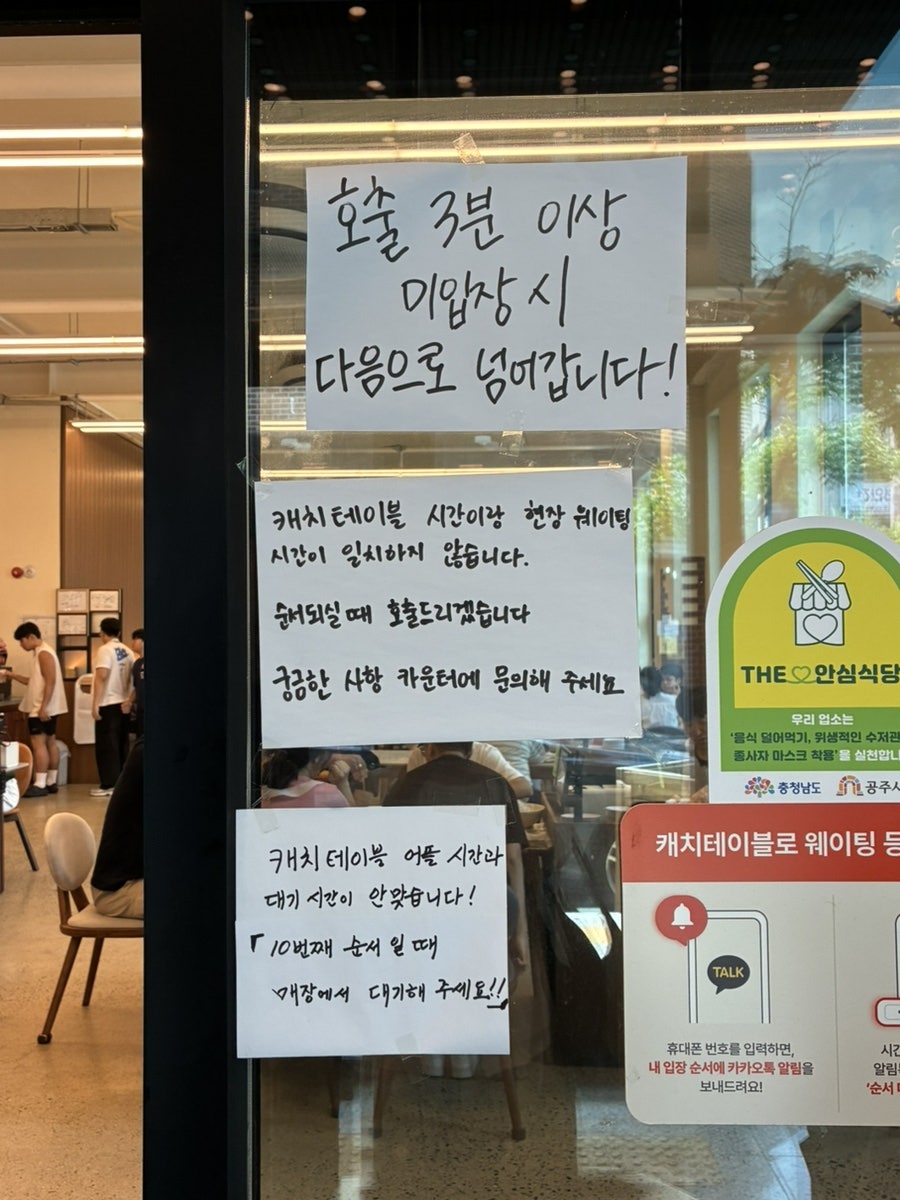 호출 3분 이상
미입장 시
다음으로 넘어갑니다!
캐치테이블 시간이랑 현장 웨이팅
시간이 일치하지 않습니다.
순서되실 때 호출드리겠습니다
궁금한 사항 카운터에 문의해 주세요
캐치테이블 어플 시간과
대기 시간이 안맞습니다!
「10번째 순서 일 때
매장에서 대기해 주세요!!」
THE 안심식당
우리 업소는
'음식 덜어먹기, 위생적인 수저관
종사자 마스크 착용'을 실천합니
충청남도 공주시
캐치테이블로 웨이팅 등
TALK
휴대폰 번호를 입력하면,
내 입장 순서에 카카오톡 알림을
보내드려요!
시간
알림
'순서